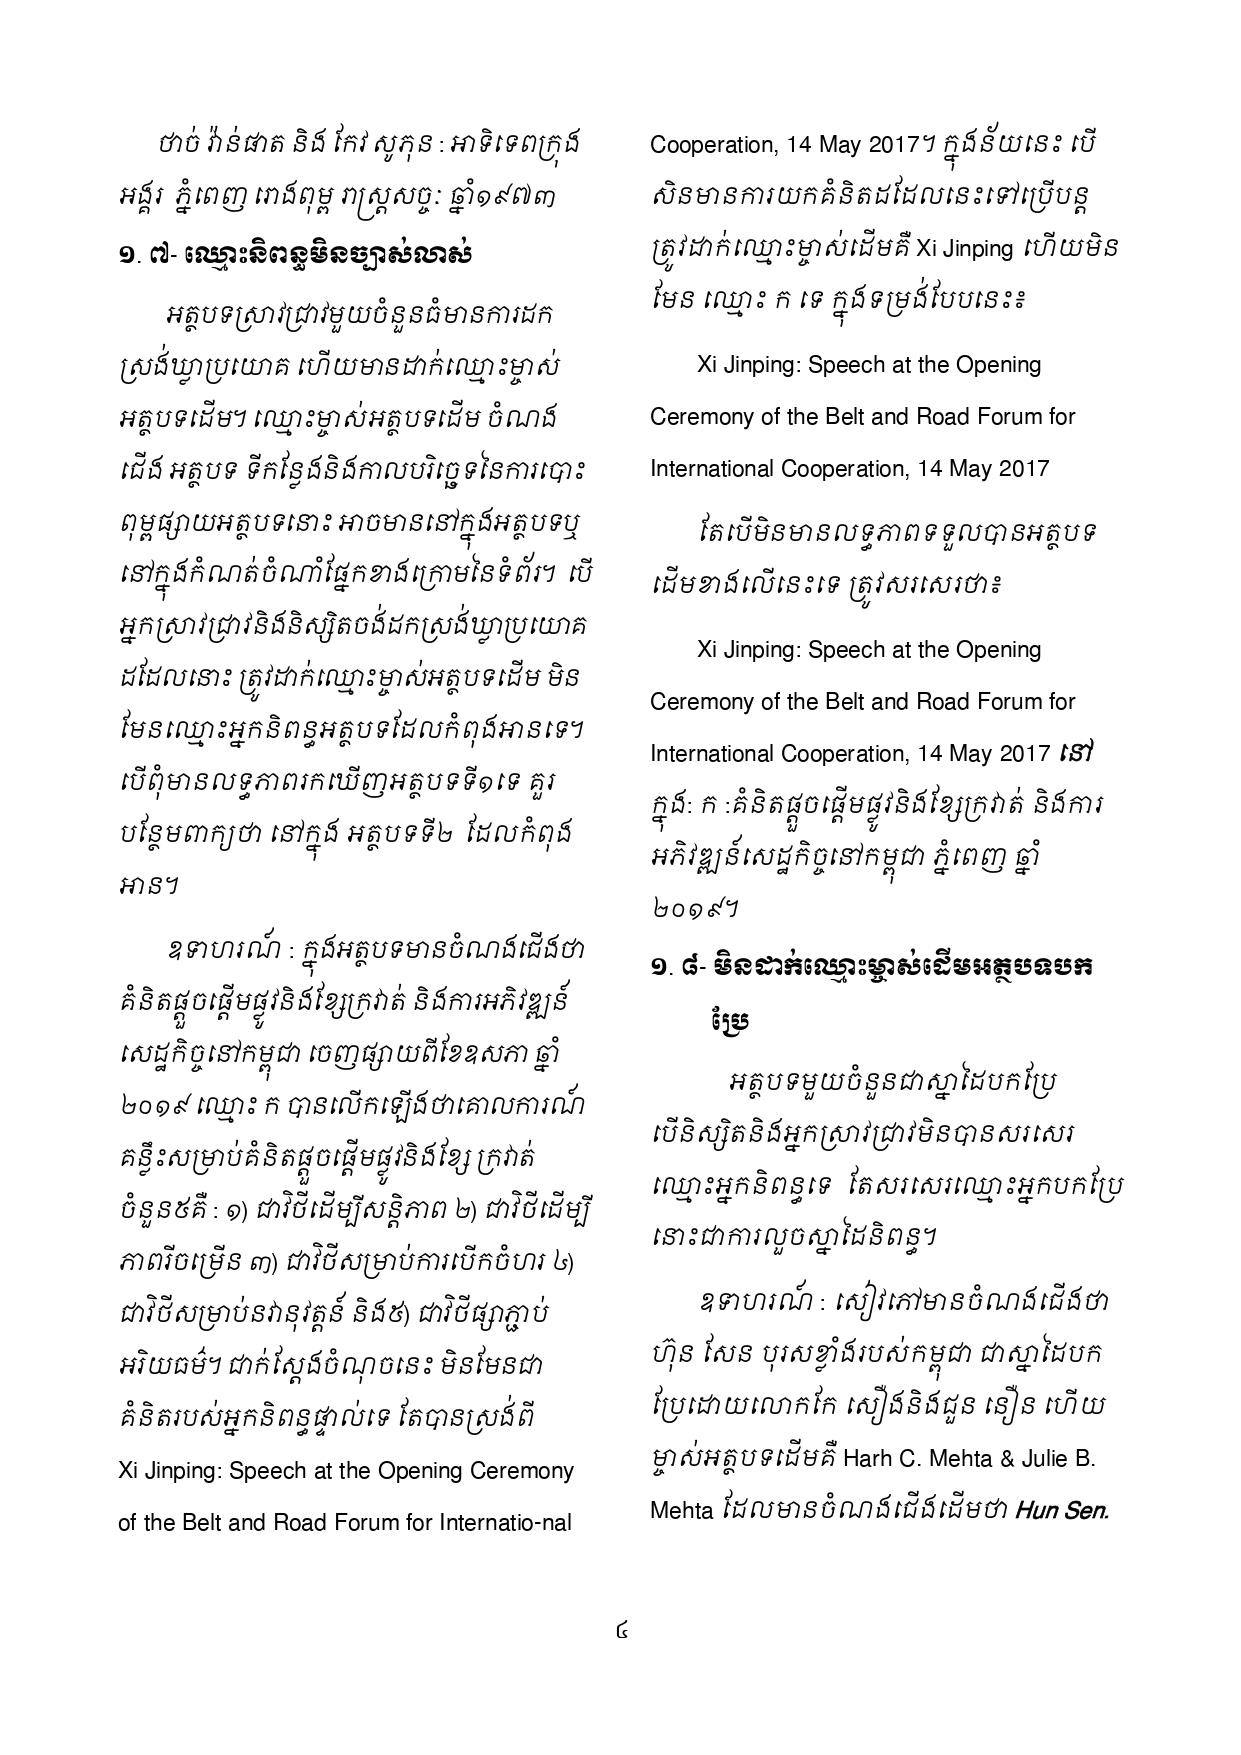 ថាច់ វ៉ាន់ផាត និង កែវ សូភុន : អាទិទេពក្រុង
អង្គរ ភ្នំពេញ រោងពុម្ព រាស្ត្រសច្ចៈ ឆ្នាំ១៩៧៣
១. ៧- ឈ្មោះនិពន្ធមិនច្បាស់លាស់
អត្ថបទស្រាវជ្រាវមួយចំនួនធំមានការដក
ស្រង់ឃ្លាប្រយោគ ហើយមានដាក់ឈ្មោះម្ចាស់
អត្ថបទដើម។ ឈ្មោះម្ចាស់អត្ថបទដើម ចំណង
ជើង អត្ថបទ ទីកន្លែងនិងកាលបរិច្ឆេទនៃការបោះ
ពុម្ពផ្សាយអត្ថបទនោះ អាចមាននៅក្នុងអត្ថបទឬ
នៅក្នុងកំណត់ចំណាំផ្នែកខាងក្រោមនៃទំព័រ។ បើ
អ្នកស្រាវជ្រាវនិងនិស្សិតចង់ដកស្រង់ឃ្លាប្រយោគ
ដដែលនោះ ត្រូវដាក់ឈ្មោះម្ចាស់អត្ថបទដើម មិន
មែនឈ្មោះអ្នកនិពន្ធអត្ថបទដែលកំពុងអានទេ។
បើពុំមានលទ្ធភាពរកឃើញអត្ថបទទី១ទេ គួរ
បន្ថែមពាក្យថា នៅក្នុង អត្ថបទទី២ ដែលកំពុង
អាន។
ឧទាហរណ៍ : ក្នុងអត្ថបទមានចំណងជើងថា
គំនិតផ្តួចផ្តើមផ្លូវនិងខ្សែក្រវាត់ និងការអភិវឌ្ឍន៍
សេដ្ឋកិច្ចនៅកម្ពុជា ចេញផ្សាយពីខែឧសភា ឆ្នាំ
២០១៩ ឈ្មោះ ក បានលើកឡើងថាគោលការណ៍
គន្លឹះសម្រាប់គំនិតផ្តួចផ្តើមផ្លូវនិងខ្សែ ក្រវាត់
ចំនួន៥គឺ : ១) ជាវិថីដើម្បីសន្តិភាព ២) ជាវិថីដើម្បី
ភាពរីចម្រើន ៣) ជាវិថីសម្រាប់ការបើកចំហរ ៤)
ជាវិថីសម្រាប់នវានុវត្តន៍ និង៥) ជាវិថីផ្សាភ្ជាប់
អរិយធម៌។ ជាក់ស្តែងចំណុចនេះ មិនមែនជា
គំនិតរបស់អ្នកនិពន្ធផ្ទាល់ទេ តែបានស្រង់ពី
Xi Jinping: Speech at the Opening Ceremony
of the Belt and Road Forum for Internatio-nal
Cooperation, 14 May 2017។ ក្នុងន័យនេះ បើ
សិនមានការយកគំនិតដដែលនេះទៅប្រើបន្ត
ត្រូវដាក់ឈ្មោះម្ចាស់ដើមគឺ Xi Jinping ហើយមិន
មែន ឈ្មោះ ក ទេ ក្នុងទម្រង់បែបនេះ៖
Xi Jinping: Speech at the Opening
Ceremony of the Belt and Road Forum for
International Cooperation, 14 May 2017
តែបើមិនមានលទ្ធភាពទទួលបានអត្ថបទ
ដើមខាងលើនេះទេ ត្រូវសរសេរថា៖
Xi Jinping: Speech at the Opening
Ceremony of the Belt and Road Forum for
International Cooperation, 14 May 2017 នៅ
ក្នុង: ក :គំនិតផ្តួចផ្តើមផ្លូវនិងខ្សែក្រវាត់ និងការ
អភិវឌ្ឍន៍សេដ្ឋកិច្ចនៅកម្ពុជា ភ្នំពេញ ឆ្នាំ
២០១៩។
១. ៨- មិនដាក់ឈ្មោះម្ចាស់ដើមអត្ថបទបក
ប្រែ
អត្ថបទមួយចំនួនជាស្នាដៃបកប្រែ
បើនិស្សិតនិងអ្នកស្រាវជ្រាវមិនបានសរសេរ
ឈ្មោះអ្នកនិពន្ធទេ តែសរសេរឈ្មោះអ្នកបកប្រែ
នោះជាការលួចស្នាដៃនិពន្ធ។
ឧទាហរណ៍ : សៀវភៅមានចំណងជើងថា
ហ៊ុន សែន បុរសខ្លាំងរបស់កម្ពុជា ជាស្នាដៃបក
ប្រែដោយលោកកែ សឿងនិងជួន នឿន ហើយ
ម្ចាស់អត្ថបទដើមគឺ Harh C. Mehta & Julie B.
Mehta ដែលមានចំណងជើងដើមថា Hun Sen.
៤